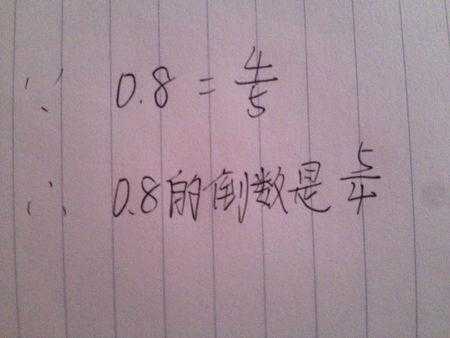 ∵ 0.8 = 4/5
∴ 0.8的倒数是 5/4